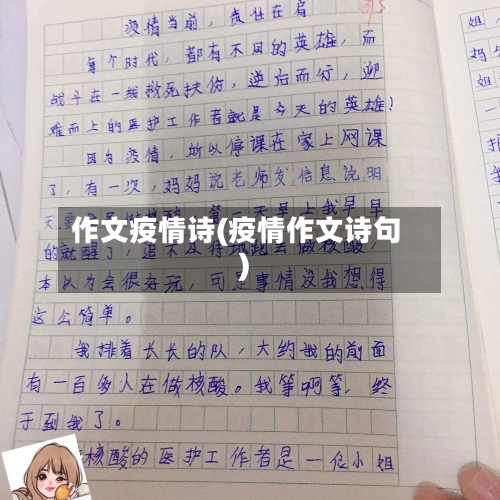 疫情当前，责任在肩
每个时代，都有不同的英雄，而
战斗在一线救死扶伤，逆后而行，迎
难而上的医护工作者就是今天的英雄！
因为疫情，所以停课在家上网课
了，有一次，妈妈说老师发信息说明
天要
一天早上我早早
作文疫情诗(疫情作文诗句
)
的就醒了，
跑去做核酸，
本以为会很好玩，可是事情没我想得
这么简单。
我排着长长的队，大约我的前面
有一百多人在做核酸。我等啊等，终
于到我了。
核酸的医护工作者是一位小姐
姐，
妈
姐